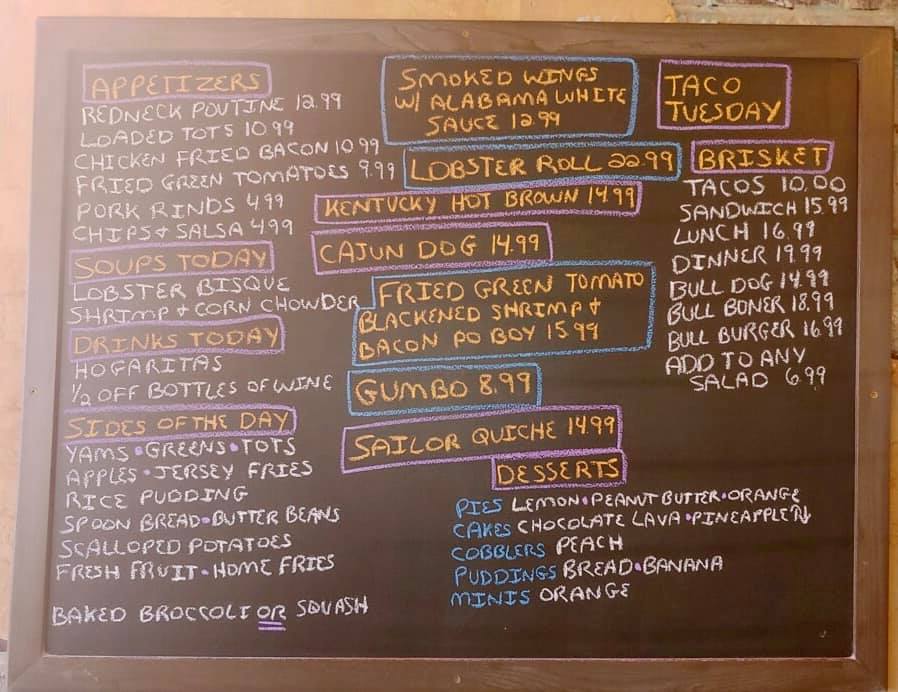 APPETIZERS
REDNECK POUTINE 12.99
LOADED TOTS 10.99
CHICKEN FRIED BACON 10.99
FRIED GREEN TOMATOES 9.99
PORK RINDS 4.99
CHIPS & SALSA 4.99
SOUPS TODAY
LOBSTER BISQUE
SHRIMP & CORN CHOWDER
DRINKS TODAY
HOGARITAS
1/2 OFF BOTTLES OF WINE
SIDES OF THE DAY
YAMS • GREENS • TOTS
APPLES • JERSEY FRIES
RICE PUDDING
SPOON BREAD • BUTTER BEANS
SCALLOPED POTATOES
FRESH FRUIT • HOME FRIES
BAKED BROCCOLI OR SQUASH
SMOKED WINGS
W/ ALABAMA WHITE
SAUCE 12.99
LOBSTER ROLL 22.99
KENTUCKY HOT BROWN 14.99
CAJUN DOG 14.99
FRIED GREEN TOMATO
BLACKENED SHRIMP &
BACON PO BOY 15.99
GUMBO 8.99
SAILOR QUICHE 14.99
DESSERTS
PIES LEMON • PEANUT BUTTER • ORANGE
CAKES CHOCOLATE LAVA • PINEAPPLE
COBBLERS PEACH
PUDDINGS BREAD • BANANA
MINIS ORANGE
TACO
TUESDAY
BRISKET
TACOS 10.00
SANDWICH 15.99
LUNCH 16.99
DINNER 19.99
BULL DOG 14.99
BULL BONER 18.99
BULL BURGER 16.99
ADD TO ANY
SALAD 6.99